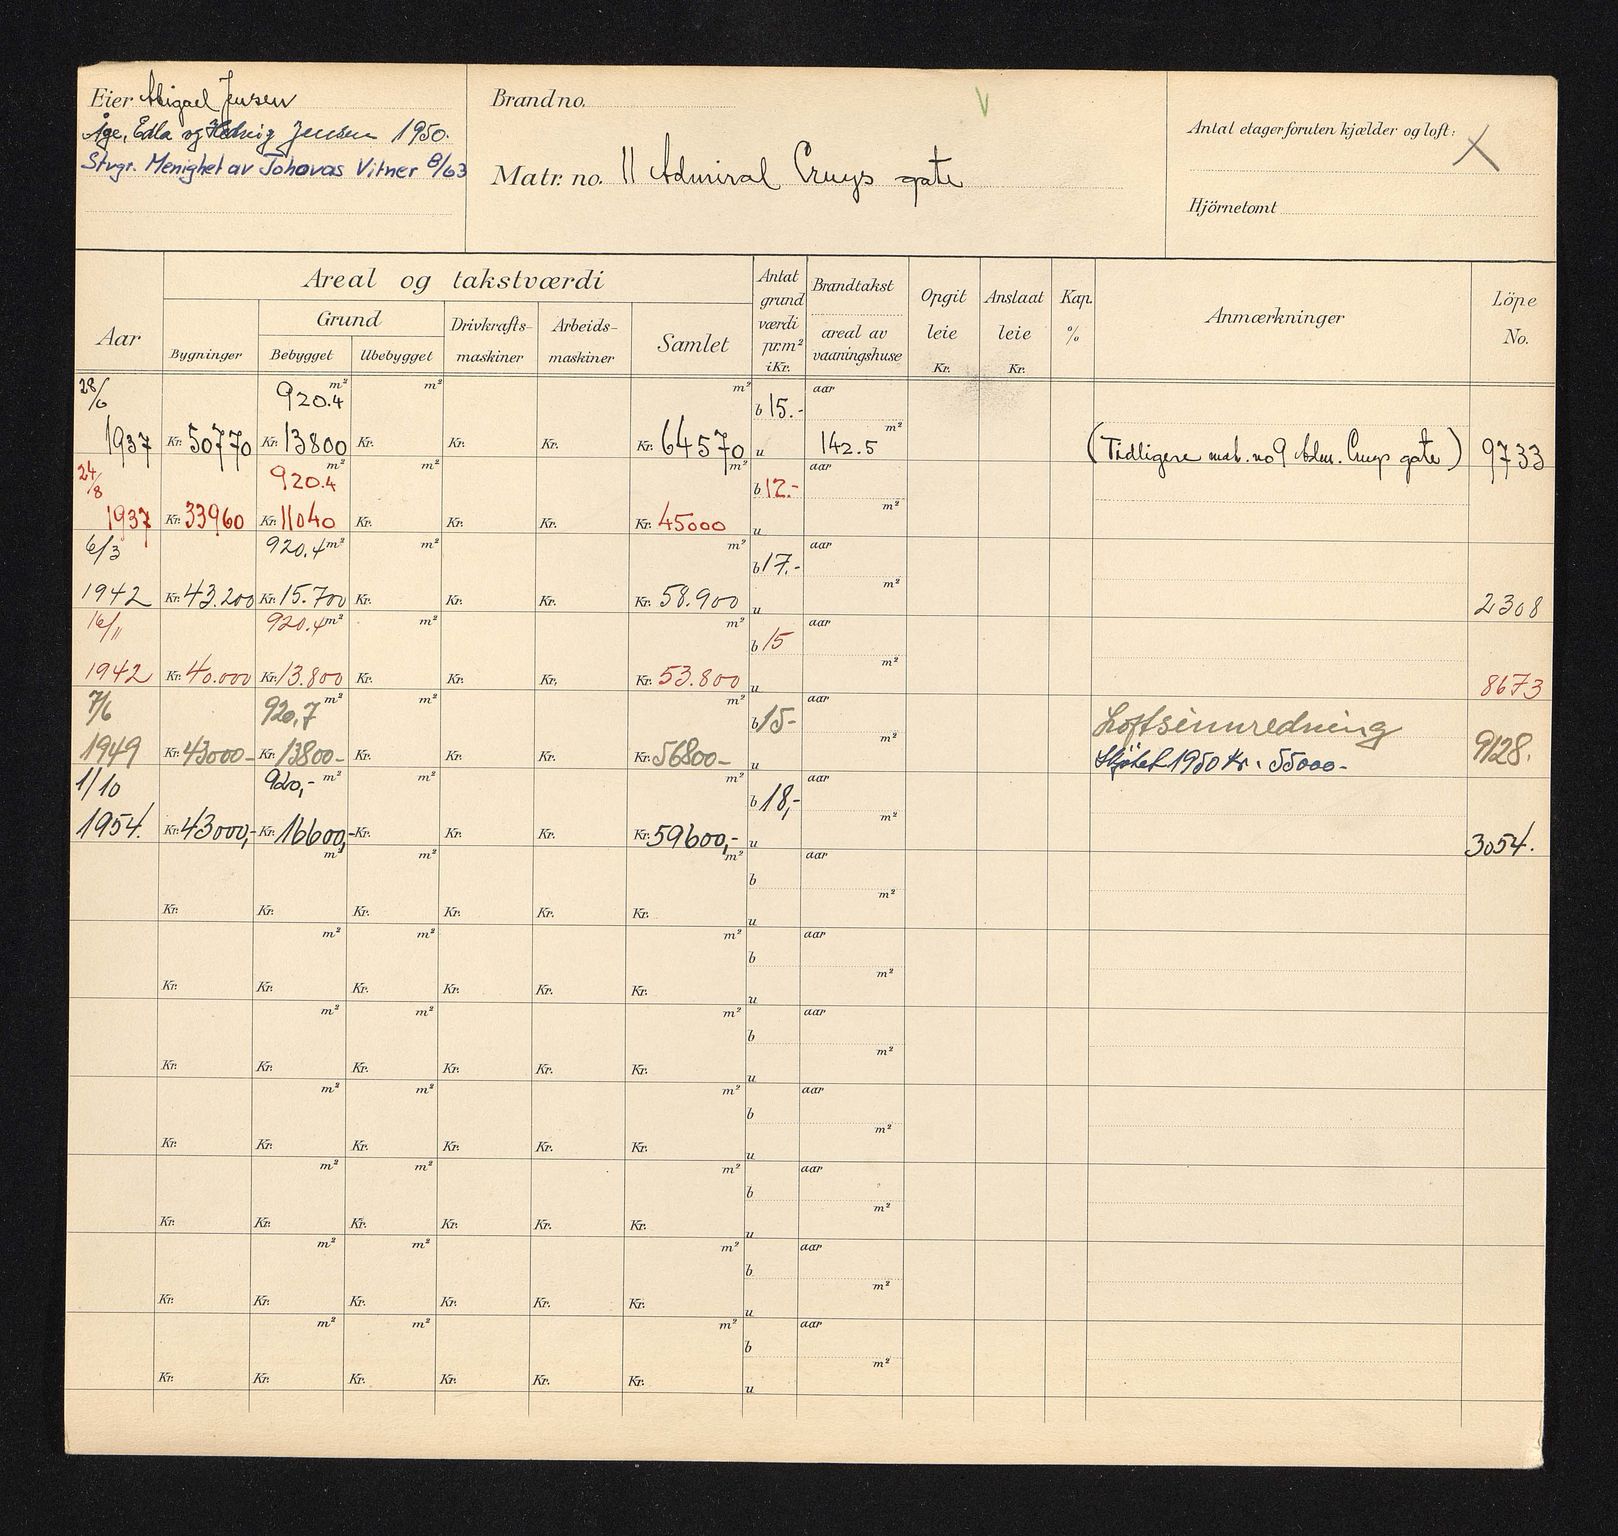 Eier Abigael Jensen
Åge, Edla og Hedvig Jensen 1950.
Stvgr. Menighet av Johovas Vitner 8/63
Brand no.
Matr. no. 11 Admiral Cruys gate
V
Antal etager foruten kjælder og loft: X
Hjörnetomt
Aar
Areal og takstværdi
Bygninger
Grund
Bebygget
Ubebygget
Drivkrafts-
maskiner
Arbeids-
maskiner
Samlet
Antat
grund
værdi
pr.m²
i Kr.
Brandtakst
areal av
vaaningshuse
Opgit
leie
Kr.
Anslaat
leie
Kr.
Kap.
%
Anmærkninger
Löpe
No.
28/6 920.4 m² m² m² b 15.- aar
m²
1937 Kr. 50770 Kr. 13800 Kr. Kr. Kr. Kr. 64570 u 142.5 (Tidligere mat. no 9 Adm. Cruys gate) 9733
24/8 920.4 m² m² m² b 12.- aar
m²
1937 Kr. 33960 Kr. 11040 Kr. Kr. Kr. Kr. 45000 u
6/3 920.4 m² m² m² b 17.- aar
m²
1942 Kr. 43.200 Kr. 15.700 Kr. Kr. Kr. Kr. 58.900 u 2308
16/11 920.4 m² m² m² b 15 aar
m²
1942 Kr. 40.000 Kr. 13.800 Kr. Kr. Kr. Kr. 53.800 u 8673
7/6 920,7 m² m² m² b 15- aar Loftsinnredning
m²
1949 Kr. 43000- Kr. 13800- Kr. Kr. Kr. Kr. 56800- u Skjötet 1950 Kr. 55000- 9128.
1/10 920,- m² m² m² b 18,- aar
m²
1954. Kr. 43000,- Kr. 16600,- Kr. Kr. Kr. Kr. 59600,- u 3054.
m² m² m² b aar
m²
Kr. Kr. Kr. Kr. Kr. Kr. u
m² m² m² b aar
m²
Kr. Kr. Kr. Kr. Kr. Kr. u
m² m² m² b aar
m²
Kr. Kr. Kr. Kr. Kr. Kr. u
m² m² m² b aar
m²
Kr. Kr. Kr. Kr. Kr. Kr. u
m² m² m² b aar
m²
Kr. Kr. Kr. Kr. Kr. Kr. u
m² m² m² b aar
m²
Kr. Kr. Kr. Kr. Kr. Kr. u
m² m² m² b aar
m²
Kr. Kr. Kr. Kr. Kr. Kr. u